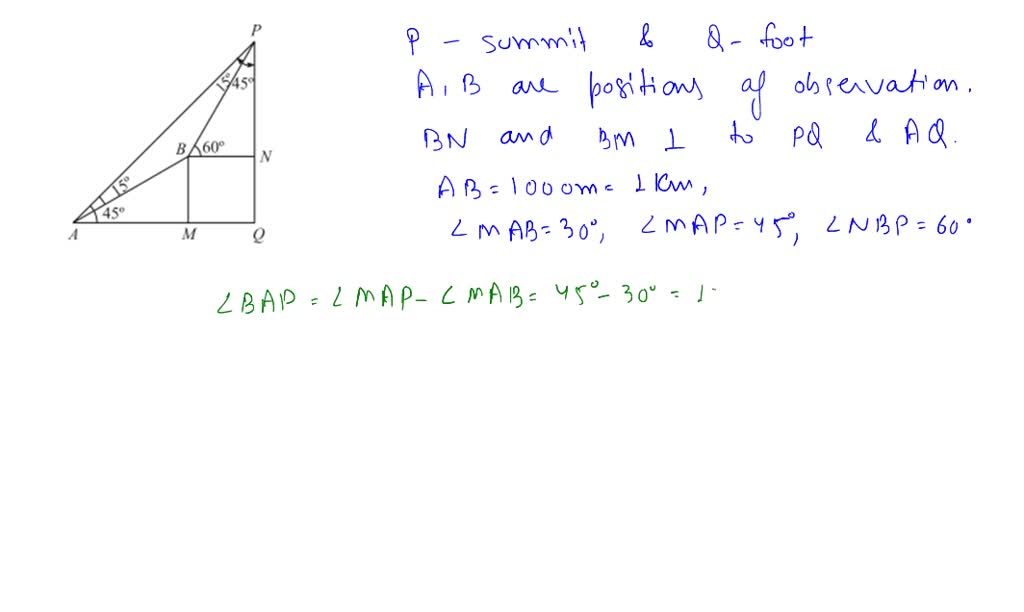 P
15°
45°
B 60° N
15°
45°
A M Q
P - summit & Q - foot
A, B are positions of observation.
BN and BM ⊥ to PQ & AQ.
AB = 1000m = 1 Km,
∠MAB = 30°, ∠MAP = 45°, ∠NBP = 60°
∠BAP = ∠MAP - ∠MAB = 45° - 30° = 1